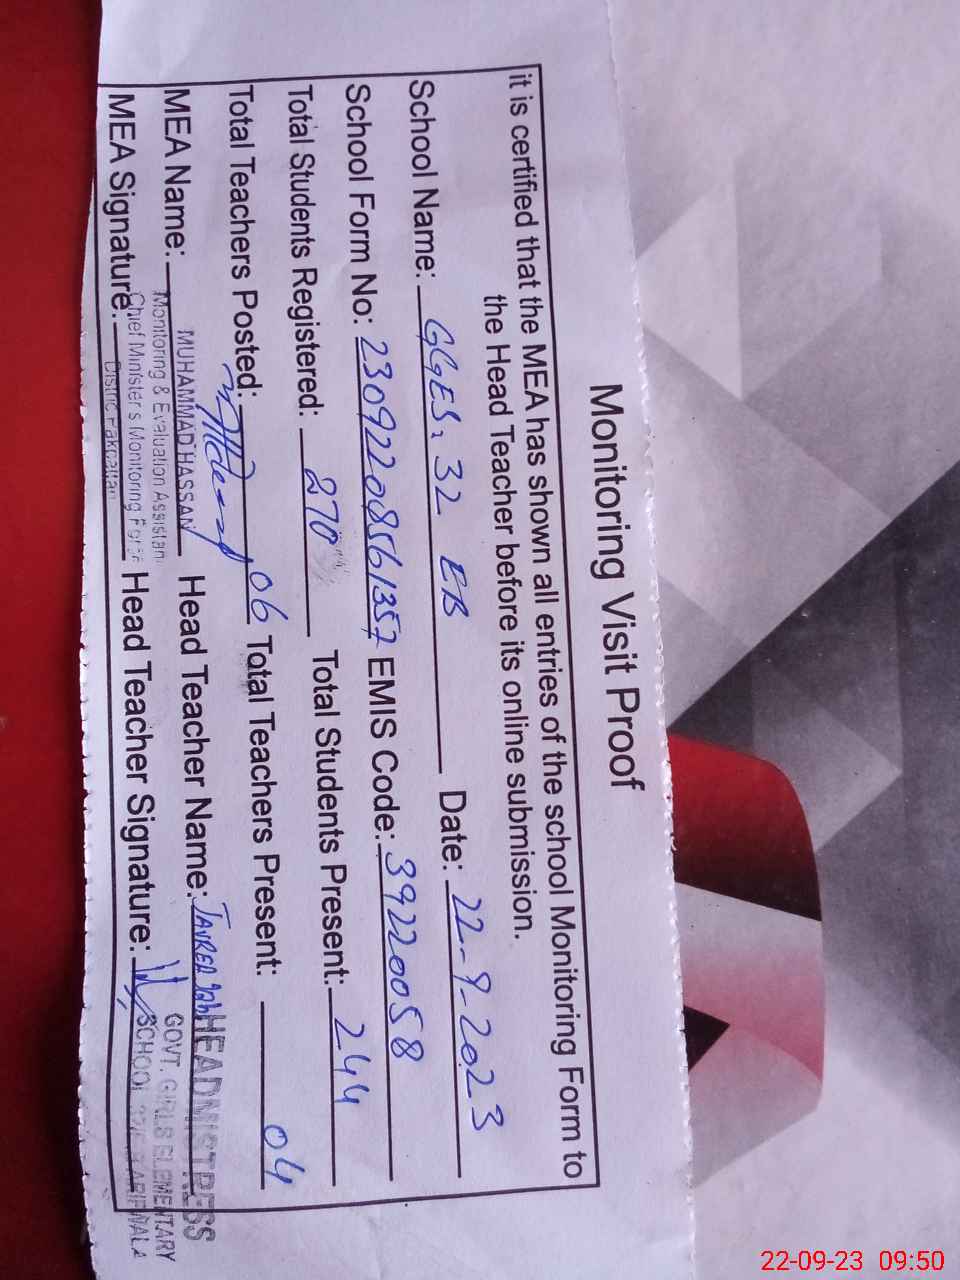 Monitoring Visit Proof
it is certified that the MEA has shown all entries of the school Monitoring Form to
the Head Teacher before its online submission.
School Name: GGES. 32 EB Date: 22-9-2023
School Form No: 23092208561357 EMIS Code: 39220058
Total Students Registered: 270 Total Students Present: 244
Total Teachers Posted: 06 Total Teachers Present: 04
MEA Name: MUHAMMAD HASSAN Head Teacher Name: HEADMISTRESS
Monitoring & Evaluation Assistan GOVT. GIRLS ELEMENTARY
MEA Signature: Chief Minister's Monitoring Force Head Teacher Signature: SCHOOL ARIFWALA
District Pakpattan
22-09-23 09:50